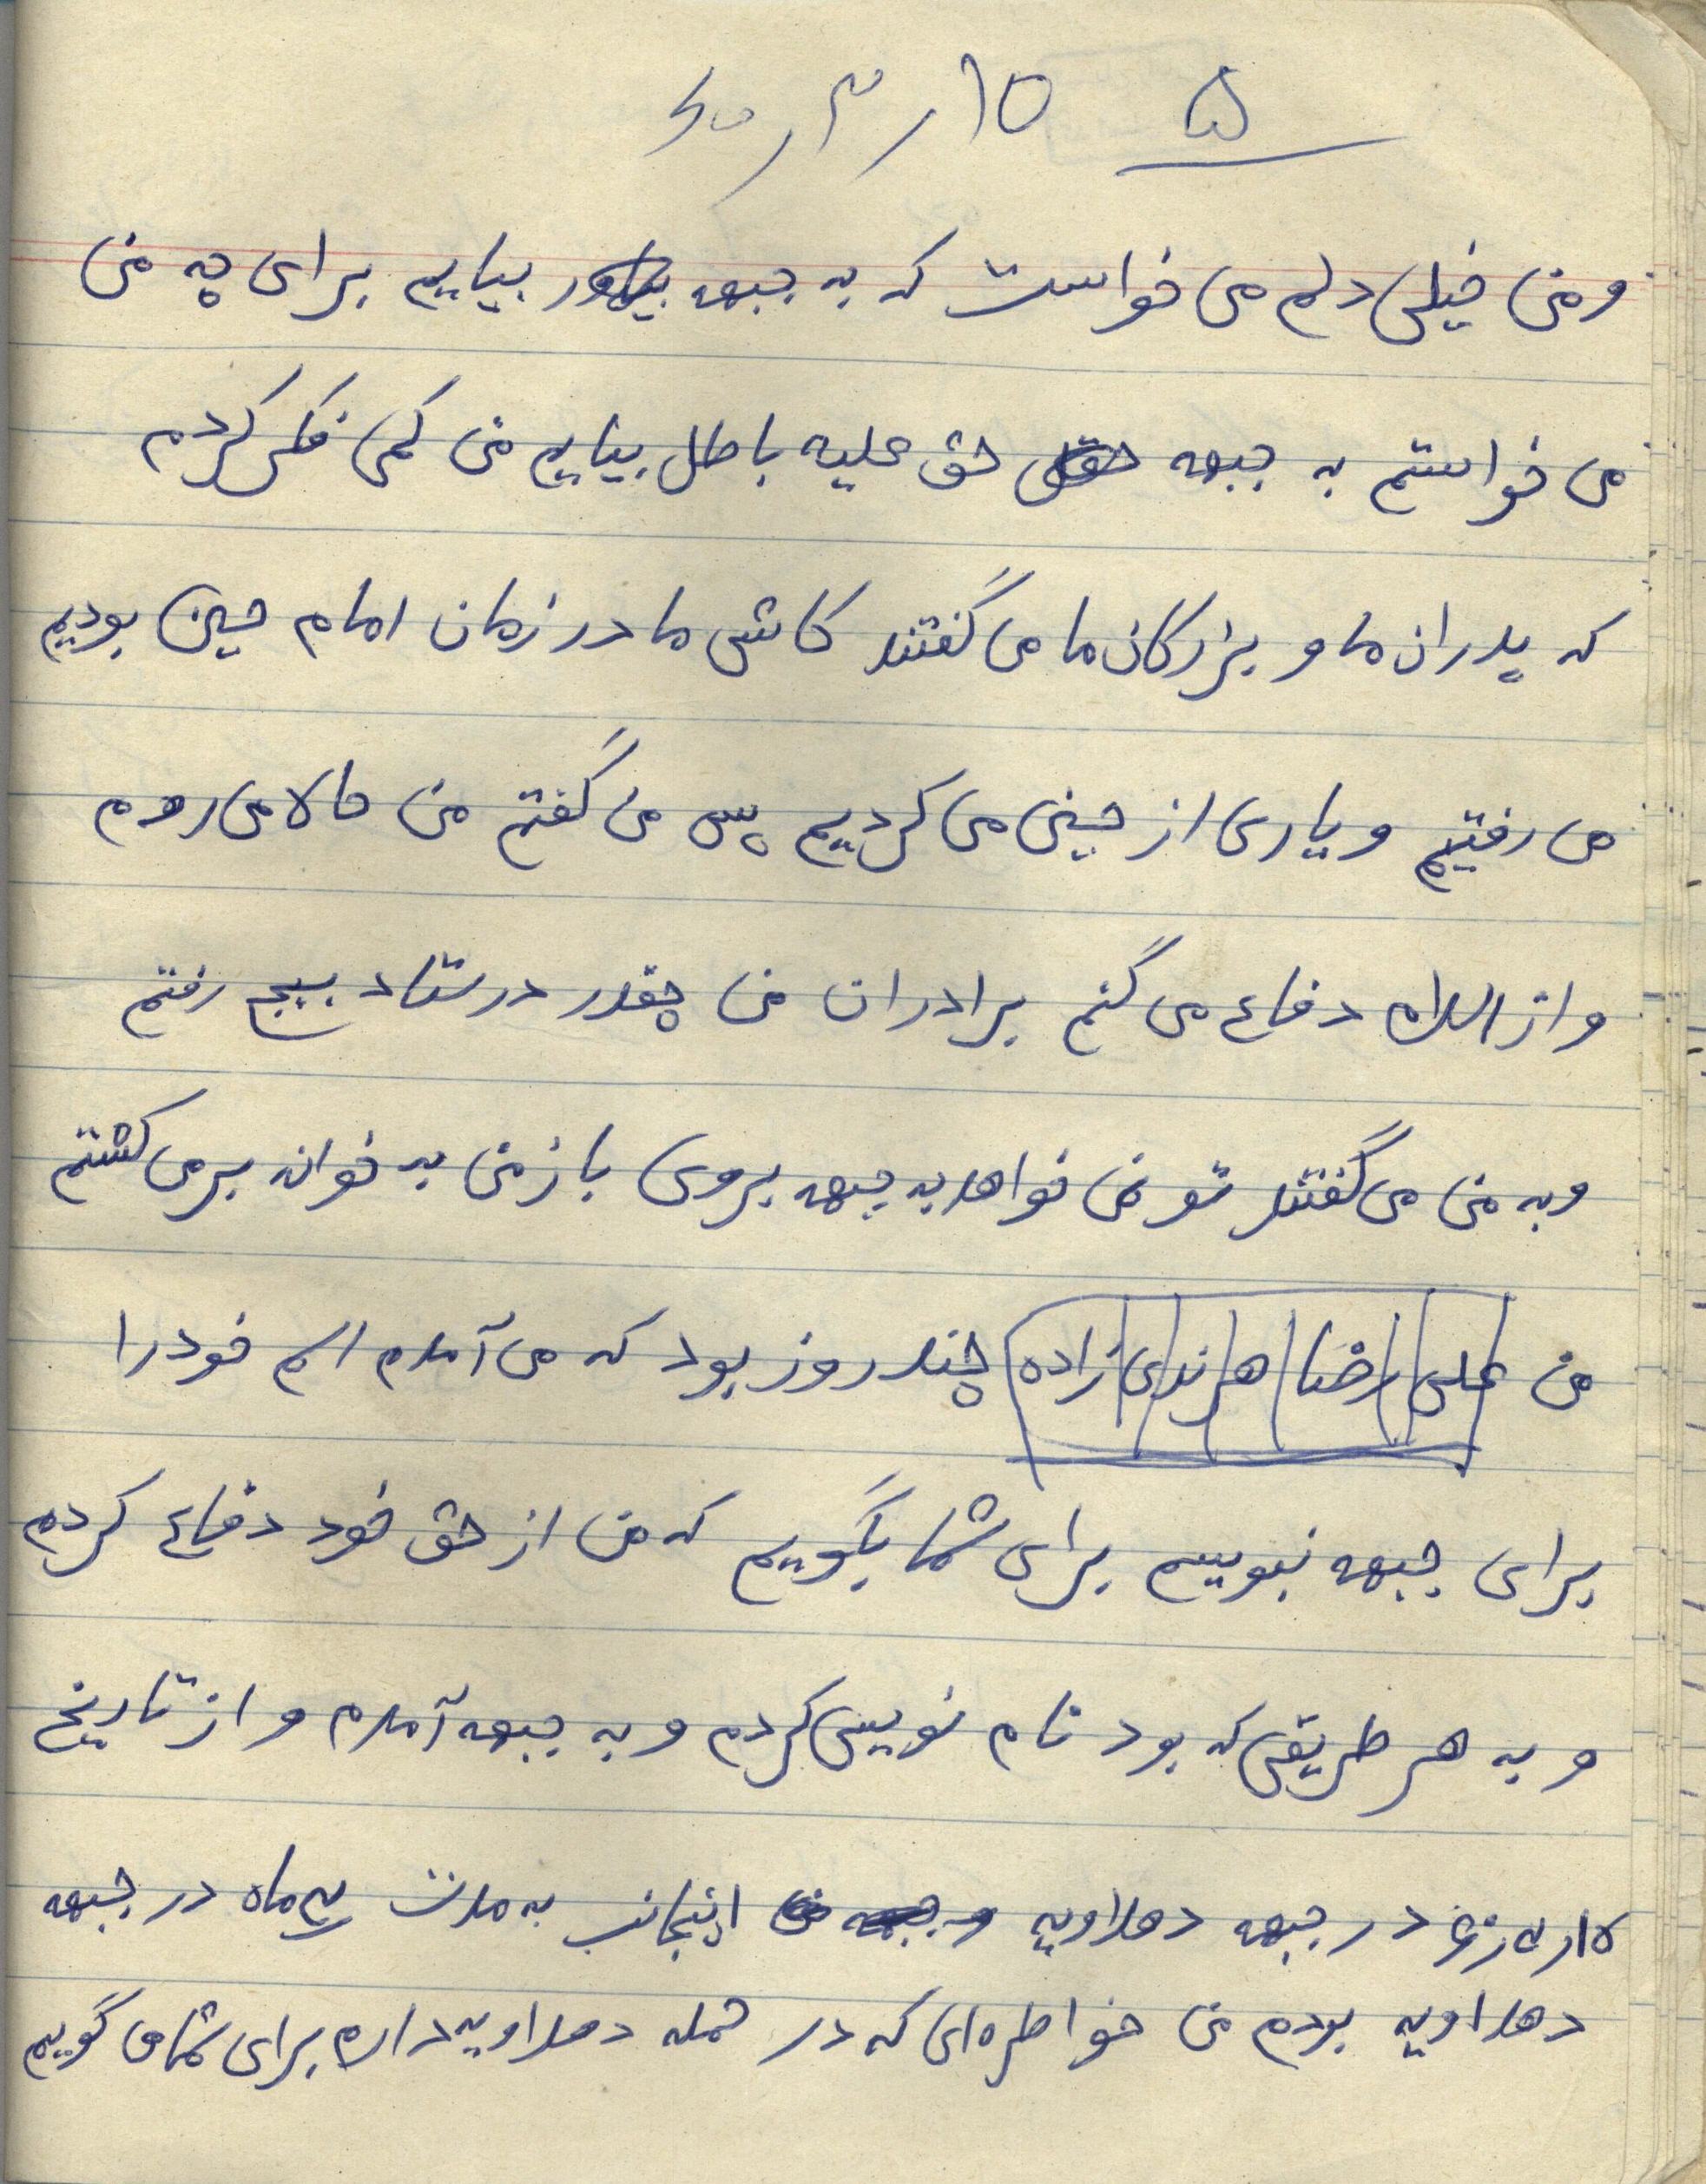 ۵ ۱۵ ر ۳ ر ۶۰
و من خیلی دلم می خواست که به جبهه بیایم برای چه من
می خواستم به جبهه حق علیه باطل بیایم من کمی فکر کردم
که پدران ما و بزرکان ما می گفتند کاش ما در زمان امام حسین بودیم
می رفتیم و یاری از حسین می کردیم پس می گفتم من حالا می روم
و از اسلام دفاع می کنم برادران من چقدر در ستاد بسیج رفتم
و به من می گفتند تو نمی خواهد به جبهه بروی باز من به خوانه برمی کشتم
من علی رضا هرندی زاده چند روز بود که می آمدم اسم خود را
برای جبهه نبویسم برای شما بگویم که من از حق خود دفاع کردم
و به هر طریقی که بود نام نویسی کردم و به جبهه آمدم و از تاریخ
در جبهه دهلاویه اینجانب به مدت ماه در جبهه
دهلاویه بودم من خواطره ای که در حمله دهلاویه دارم برای شما می گویم